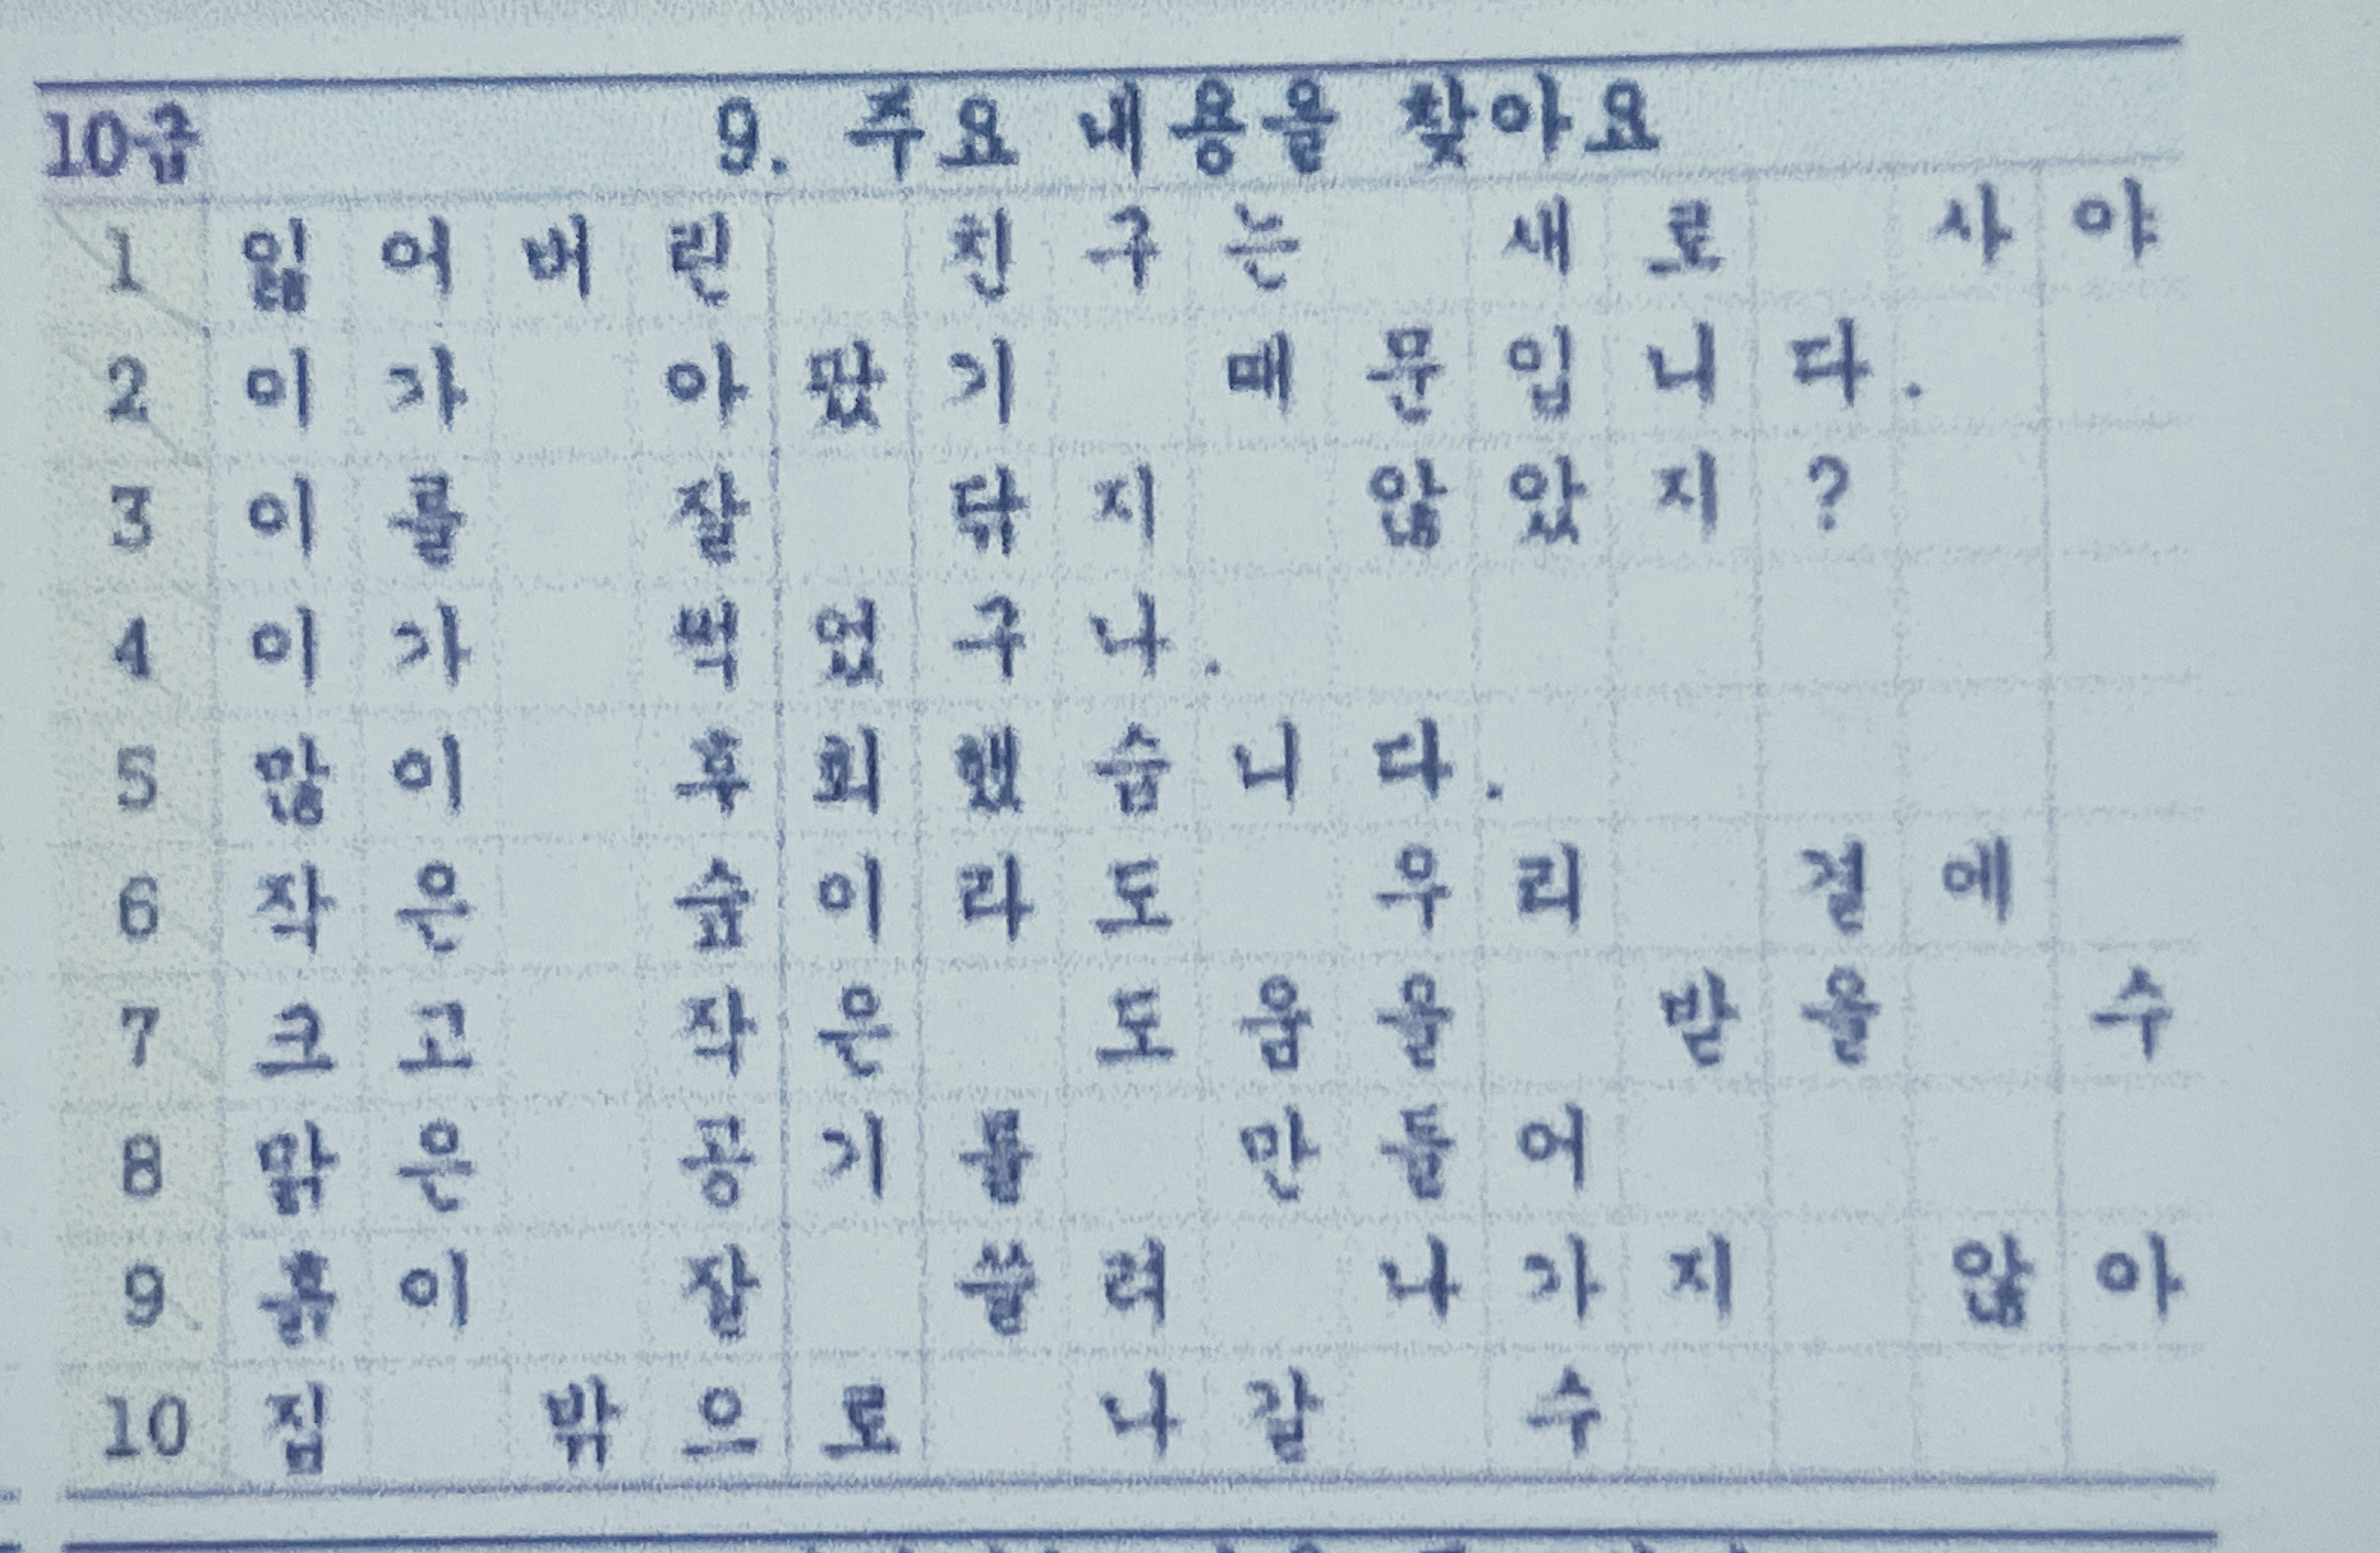 10급 9. 주요 내용을 찾아요
1 잃어버린 친구는 새로 사야
2 이가 아팠기 때문입니다.
3 이를 잘 닦지 않았지?
4 이가 썩었구나.
5 많이 후회했습니다.
6 작은 숲이라도 우리 곁에
7 크고 작은 도움을 받을 수
8 맑은 공기를 만들어
9 흙이 잘 쓸려 나가지 않아
10 집 밖으로 나갈 수